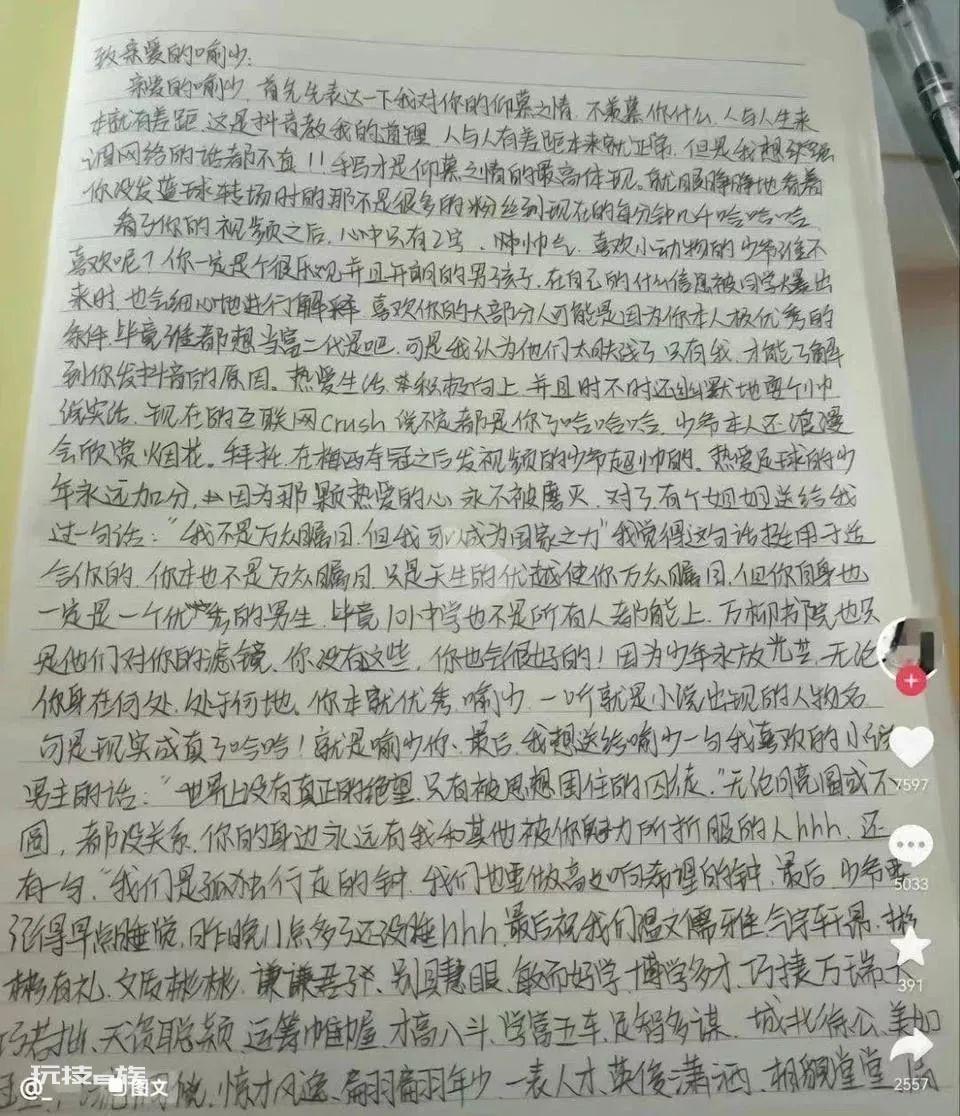 致亲爱的喻少:
亲爱的喻少,首先先表达一下我对你的仰慕之情,不羡慕你什么,人与人生来
本就有差距,这是抖音教我的道理,人与人有差距本来就正常,但是我想强
调网络的话都不真!!手写才是仰慕之情的最高体现。就眼睁睁地看着
你没发篮球转场时的那不是很多的粉丝到现在的每分钟几千哈哈哈
看了你的视频之后,心中只有2字、帅帅气,喜欢小动物的少爷谁不
喜欢呢?你一定是个很乐观并且开朗的男孩子,在自己的什么信息被同学爆出
来时,也会细心地进行解释,喜欢你的大部分人可能是因为你本人极优秀的
条件,毕竟谁都想当富二代是吧,可是我认为他们太肤浅了,只有我,才能了解
到你发抖音的原因。热爱生活,积极向上,并且时不时还幽默地耍个小帅
说实话,现在的互联网crush说不定都是你了哈哈哈,少爷本人还浪漫
会欣赏烟花。拜托,在梅西夺冠之后发视频的少爷超帅的。热爱足球的少
年永远加分,因为那颗热爱的心永不被磨灭,对了有个姐姐送给我
过一句话:“我不是万众瞩目,但我可以成为国家之力”我觉得这句话挺用于适
合你的,你本也不是万众瞩目,只是天生的优越使你万众瞩目,但你自身也
一定是一个优秀的男生,毕竟101中学也不是所有人都能上,万柳书院也只
是他们对你的滤镜,你没有这些,你也会很好的!因为少年永放光芒,无论
你身在何处,处于何地。你本就优秀,喻少,一听就是小说出现的人物名
可是现实成真了哈哈!就是喻少你、最后,我想送给喻少一句我喜欢的小说
男主的话:“世界上没有真正的绝望,只有被思想困住的囚徒。”无论月亮圆或不
圆,都没关系,你的身边永远有我和其他被你魅力所折服的人hhh,还
有一句,“我们是孤独行走的钟,我们也要做高处响希望的钟,最后,少爷要
记得早点睡觉,昨晚11点多了还没睡hhh,最后祝我们温文儒雅,气宇轩昂,彬
彬有礼,文质彬彬,谦谦君子、别具慧眼、敏而好学、博学多才、巧捷万端、大
巧若拙、天资聪颖、运筹帷幄,才高八斗、学富五车、足智多谋、城北徐公、美如
惊才风逸、翩翩年少、一表人才、英俊潇洒、相貌堂堂
7597
5033
391
2557
@_
玩技e族
图文